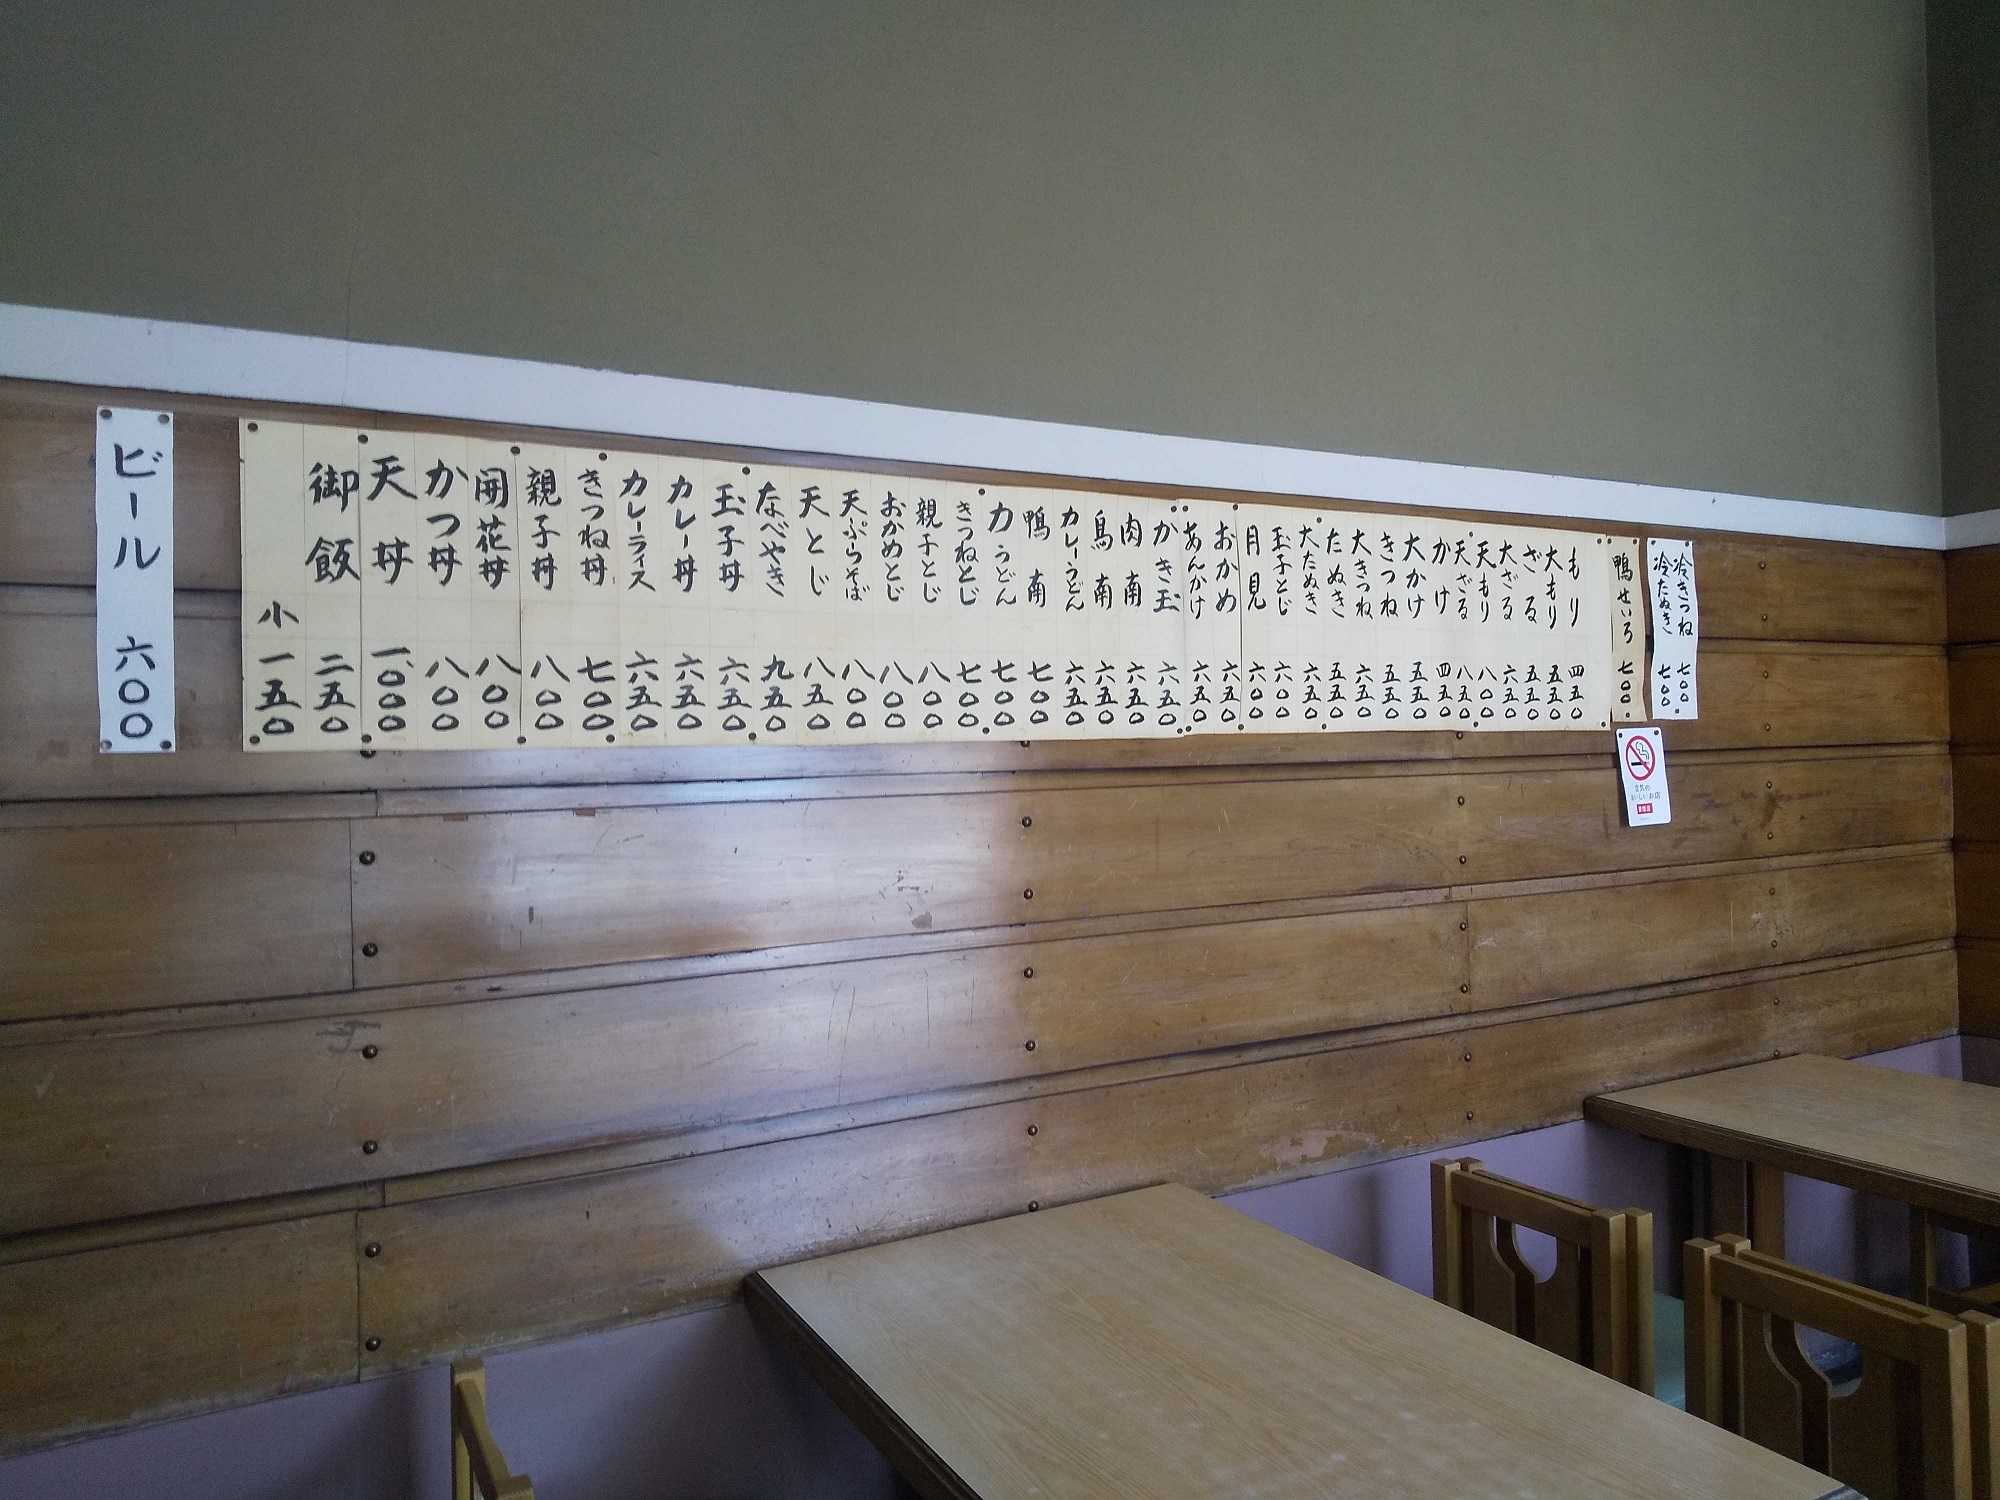 冷きつね 七〇〇
冷たぬき 七〇〇
鴨せいろ 七〇〇
もり 四五〇
大もり 五五〇
ざる 五五〇
大ざる 六五〇
天もり 八〇〇
天ざる 八五〇
かけ 四五〇
大かけ 五五〇
きつね 五五〇
大きつね 六五〇
たぬき 五五〇
大たぬき 六五〇
玉子とじ 六〇〇
月見 六〇〇
おかめ 六五〇
あんかけ 六五〇
かき玉 六五〇
肉南 六五〇
鳥南 六五〇
カレーうどん 六五〇
鴨南 七〇〇
力うどん 七〇〇
きつねとじ 七〇〇
親子とじ 八〇〇
おかめとじ 八〇〇
天ぷらそば 八〇〇
天とじ 八五〇
なべやき 九五〇
玉子丼 六五〇
カレー丼 六五〇
カレーライス 六五〇
きつね丼 七〇〇
親子丼 八〇〇
開花丼 八〇〇
かつ丼 八〇〇
天丼 一、〇〇〇
御飯 二五〇
小 一五〇
ビール 六〇〇
空気の
おいしいお店